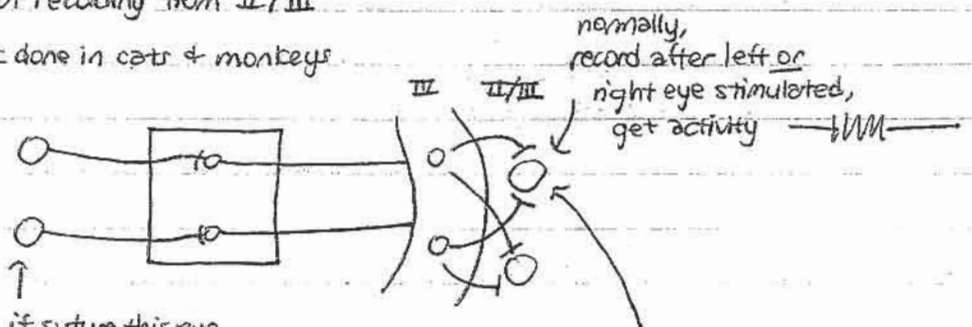 recording from II/III
done in cats & monkeys
normally,
record after left or
right eye stimulated,
get activity
IV II/III
if suture this eye